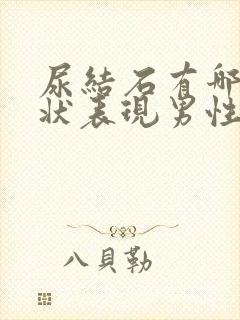 尿結石有哪
狀表現男性
八貝勒